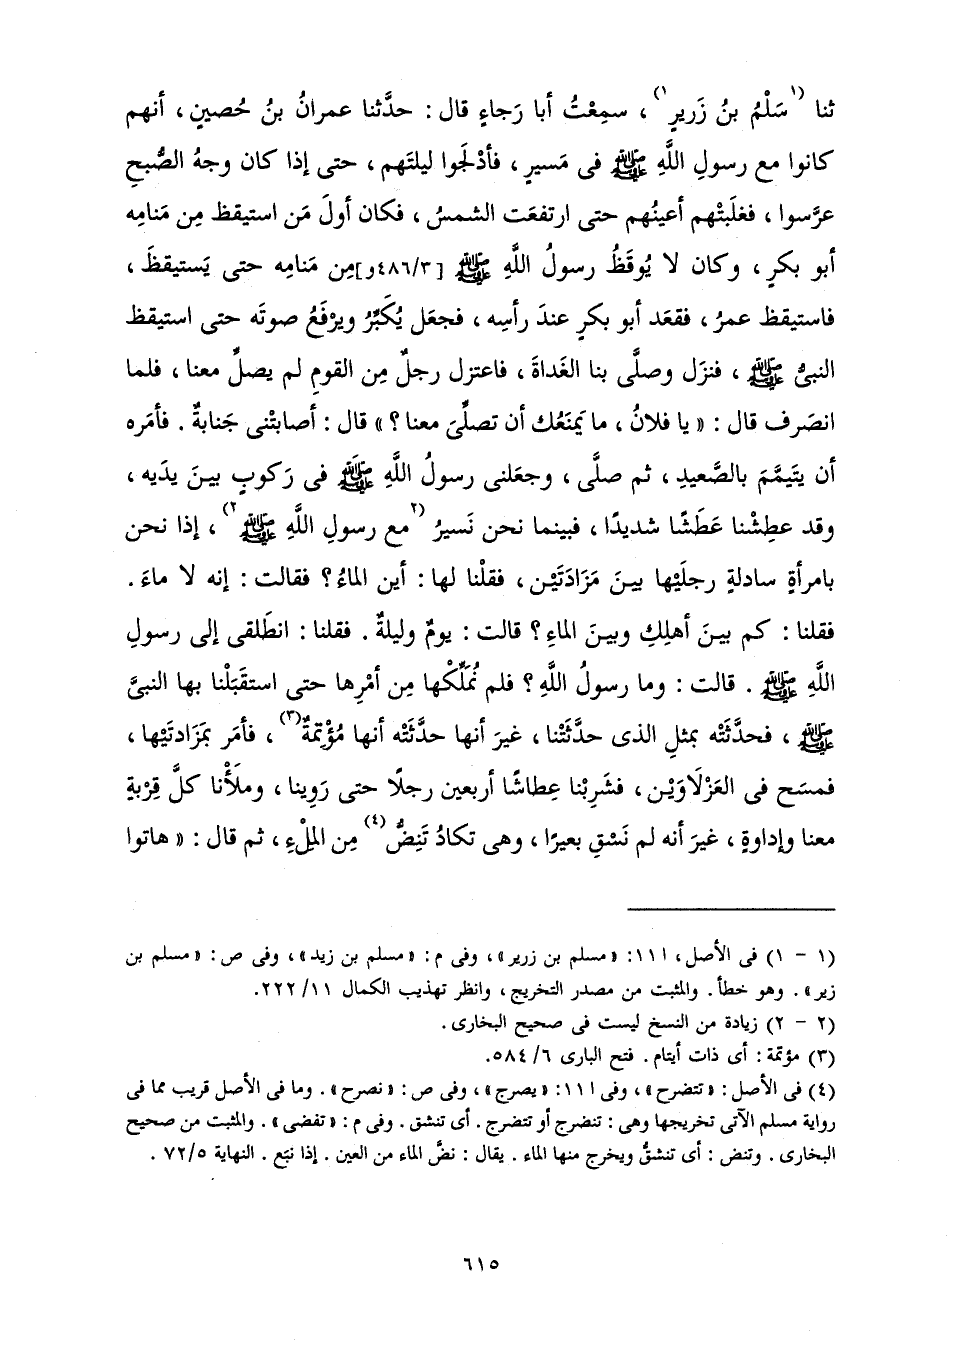 ثنا (١سَلْمُ بنُ زَريرٍ١)، سمِعْتُ أبا رَجاءٍ قال: حدَّثنا عمرانُ بنُ حُصينٍ، أنهم
كانوا مع رسولِ اللَّهِ ﷺ فى مَسيرٍ، فأَدْلَجوا ليلتَهم، حتى إذا كان وجهُ الصُّبحِ
عرَّسوا، فغلَبتْهم أعينُهم حتى ارتفعَت الشمسُ، فكان أولَ مَن استيقظ مِن مَنامِه
أبو بكرٍ، وكان لا يُوقَظُ رسولُ اللَّهِ ﷺ [٤٨٦/٣و]مِن مَنامِه حتى يَستيقظَ،
فاستيقظ عمرُ، فقعَد أبو بكرٍ عندَ رأسِه، فجعَل يُكَبِّرُ ويرْفَعُ صوتَه حتى استيقظ
النبىُّ ﷺ، فنزَل وصلَّى بنا الغَداةَ، فاعتزل رجلٌ مِن القومِ لم يصلِّ معنا، فلما
انصَرف قال: «يا فلانُ، ما يَمنَعُك أن تصلِّىَ معنا؟» قال: أصابتْنى جَنابةٌ. فأمَره
أن يتَيمَّمَ بالصَّعيدِ، ثم صلَّى، وجعَلنى رسولُ اللَّهِ ﷺ فى رَكوبٍ بينَ يدَيه،
وقد عطِشْنا عَطَشًا شديدًا، فبينما نحن نَسيرُ (٢مع رسولِ اللَّهِ ﷺ٢)، إذا نحن
بامرأةٍ سادلةٍ رجلَيْها بينَ مَزَادَتَيْن، فقلْنا لها: أين الماءُ؟ فقالت: إنه لا ماءَ.
فقلنا: كم بينَ أهلِكِ وبينَ الماءِ؟ قالت: يومٌ وليلةٌ. فقلنا: انطَلقى إلى رسولِ
اللَّهِ ﷺ. قالت: وما رسولُ اللَّهِ؟ فلم نُمَلِّكْها مِن أمْرِها حتى استقبَلْنا بها النبىَّ
ﷺ، فحدَّثَتْه بمثلِ الذى حدَّثَتْنا، غيرَ أنها حدَّثَتْه أنها مُؤْتِمةٌ(٣)، فأمَر بمَزادتَيْها،
فمسَح فى العَزْلَاوَيْن، فشَرِبْنا عِطاشًا أربعين رجلًا حتى رَوِينا، وملَأْنا كلَّ قِرْبةٍ
معنا وإداوةٍ، غيرَ أنه لم نَسْقِ بعيرًا، وهى تكادُ تَنِضُّ(٤) مِن المِلْءِ، ثم قال: «هاتوا
(١ - ١) فى الأصل، ١١١: «مسلم بن زرير»، وفى م: «مسلم بن زيد»، وفى ص: «مسلم بن
زير». وهو خطأ. والمثبت من مصدر التخريج، وانظر تهذيب الكمال ٢٢٢/١١.
(٢ - ٢) زيادة من النسخ ليست فى صحيح البخارى.
(٣) مؤتمة: أى ذات أيتام. فتح البارى ٥٨٤/٦.
(٤) فى الأصل: «تتضرح»، وفى ١١١: «يصرج»، وفى ص: «نصرح». وما فى الأصل قريب مما فى
رواية مسلم الآتى تخريجها وهى: تنضرج أو تتضرج. أى تنشق. وفى م: «تفضى». والمثبت من صحيح
البخارى. وتنض: أى تنشقُّ ويخرج منها الماء. يقال: نضَّ الماء من العين. إذا نبَع. النهاية ٧٢/٥.
٦١٥